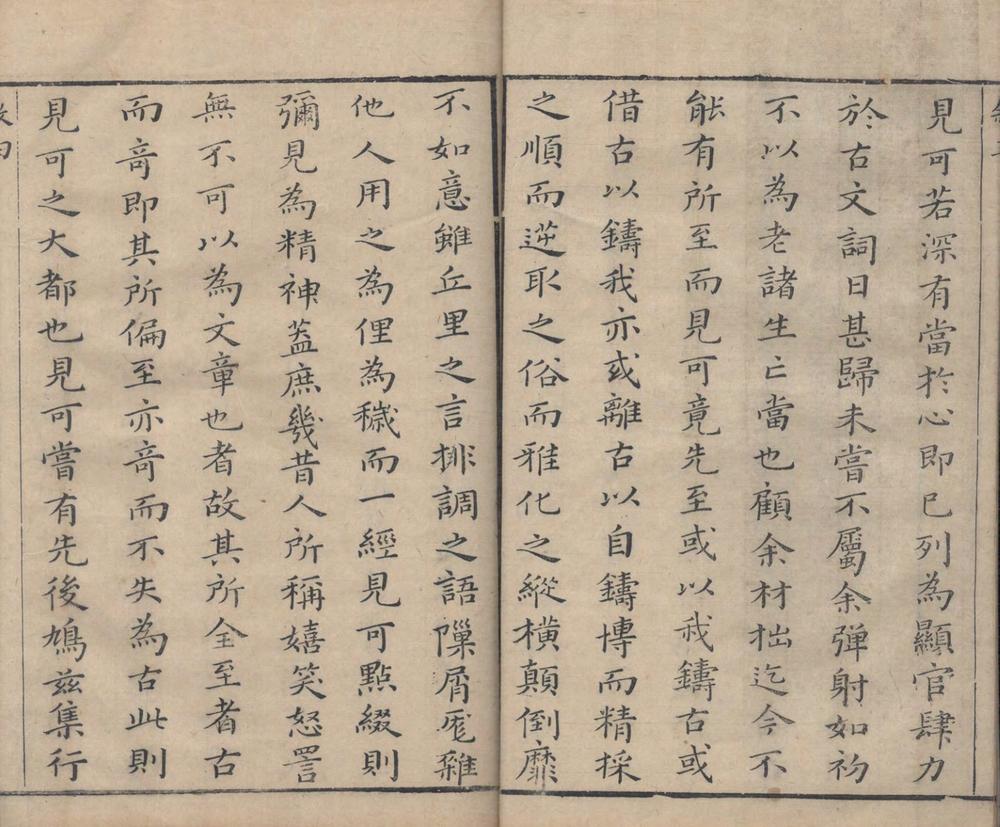 見可若深有當於心即已列為顯官肆力
於古文詞日甚歸未嘗不屬余彈射如初
不以為老諸生亡當也顧余材拙迄今不
能有所至而見可竟先至或以我鑄古或
借古以鑄我亦或離古以自鑄博而精採
之順而逆取之俗而雅化之縱橫顛倒靡
不如意雖丘里之言排調之語隟屑𢈪雜
他人用之為俚為穢而一經見可點綴則
彌見為精神蓋庶幾昔人所稱嬉笑怒詈
無不可以為文章也者故其所全至者古
而竒即其所偏至亦竒而不失為古此則
見可之大都也見可嘗有先後鳩茲集行